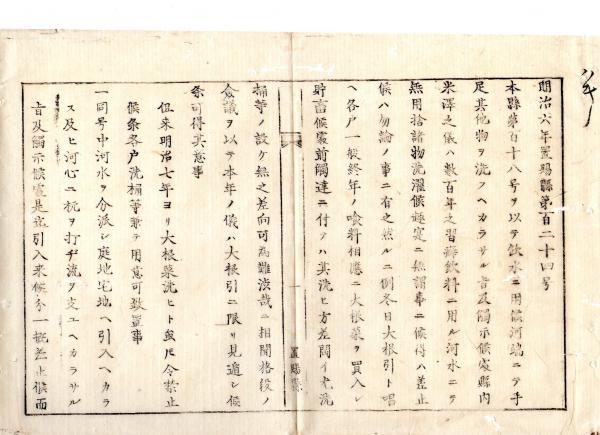 明治六年置賜縣第百二十四号
本縣第百十八号ヲ以テ飲水ニ用候河端ニテ手
足其他物ヲ洗フヘカラサル旨及觸示候處縣内
米澤之儀ハ數百年之習癖飲料ニ用ル河水ニテ
無用捨諸物洗濯候趣寔ニ無謂事ニ候得ハ差止
候ハ勿論ノ事ニ有之然ルニ例冬日大根引ト唱
ヘ各戸一般終年ノ喰料相應ニ大根菜ヲ買入レ
貯畜候處前觸達ニ付テハ其洗ヒ方差閊イ尤洗
桶等ノ設ケ無之差向可為難渋哉ニ相聞格段ノ
僉議ヲ以テ本年ノ儀ハ大根引ニ限リ見遁シ候
条可得其意事
但来明治七年ヨリ大根菜洗ヒト雖𪜈令禁止
候条各戸洗桶等兼テ用意可致置事
一同号中河水ヲ分派シ庭地宅地ヘ引入ヘカラ
ス及ヒ河心ニ杭ヲ打チ流ヲ支ユヘカラサル
旨及觸示候處是迄引入来候分一概差止候而
置賜縣